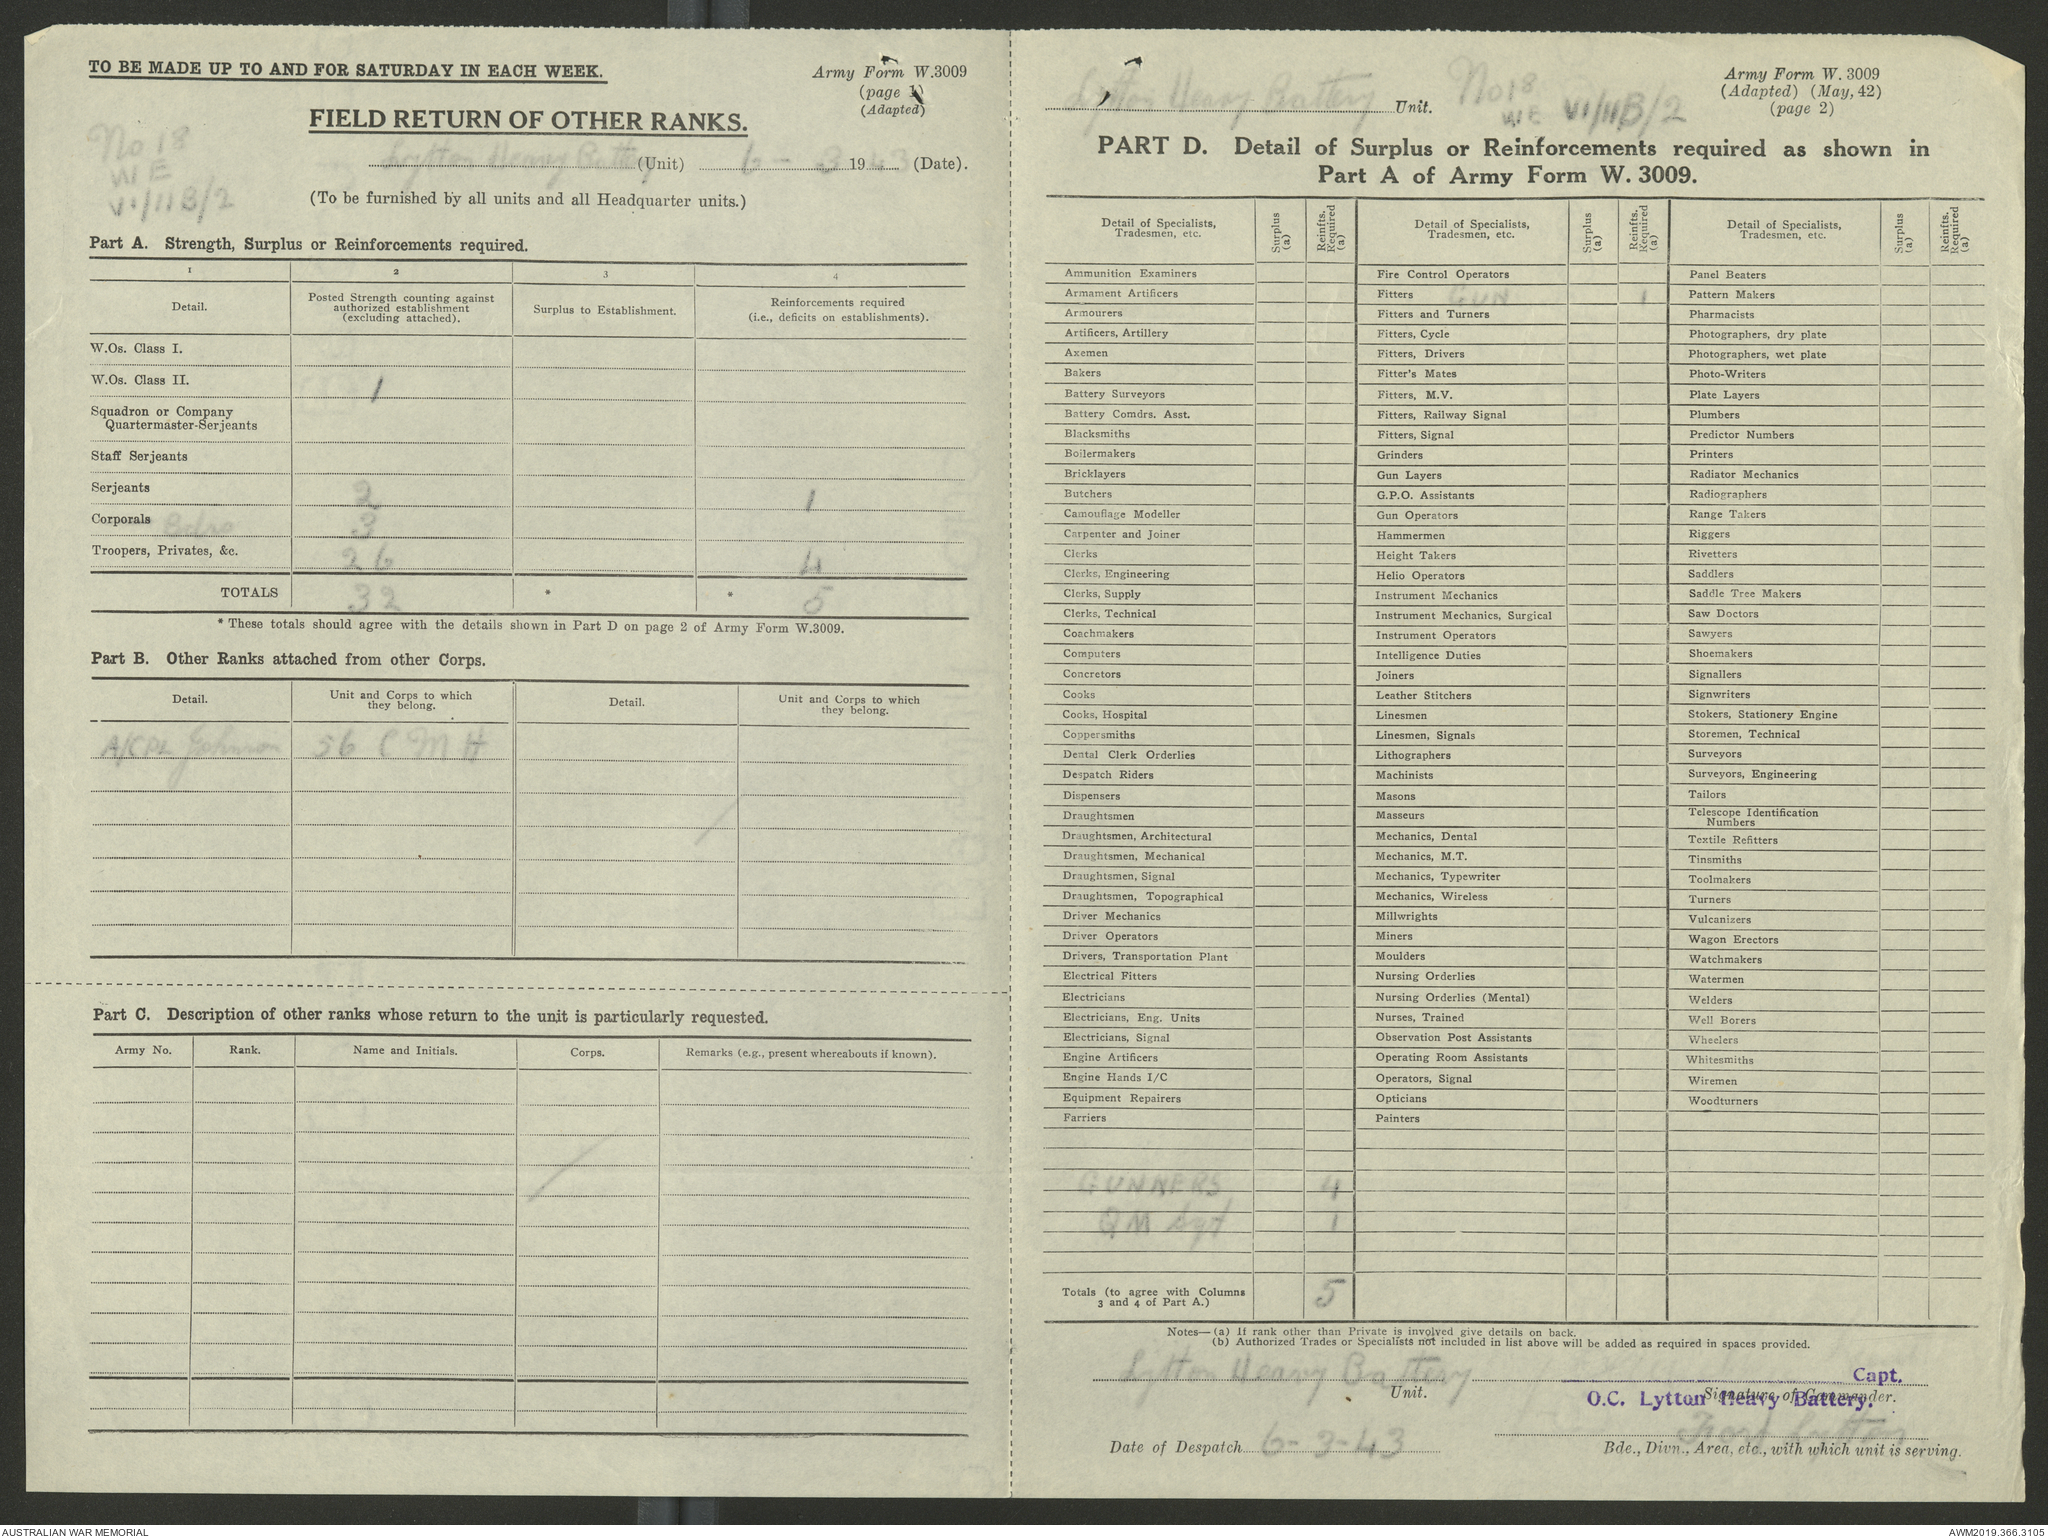 TO BE MADE UP TO AND FOR SATURDAY IN EACH WEEK.
Army Form W.3009
(page 1)
(Adapted)
FIELD RETURN OF OTHER RANKS.
No 18
WE
VI/IIB/2
Lytton Heavy Battery (Unit) 6 - 3 1943 (Date).
(To be furnished by all units and all Headquarter units.)
Part A. Strength, Surplus or Reinforcements required.
1 2 3 4
Detail. Posted Strength counting against authorized establishment (excluding attached). Surplus to Establishment. Reinforcements required (i.e., deficits on establishments).
W.Os. Class I.
W.Os. Class II. 1
Squadron or Company
Quartermaster-Serjeants
Staff Serjeants
Serjeants 2 1
Corporals Bdrs 3
Troopers, Privates, &c. 26 4
TOTALS 32 * * 5
* These totals should agree with the details shown in Part D on page 2 of Army Form W.3009.
Part B. Other Ranks attached from other Corps.
Detail. Unit and Corps to which they belong. Detail. Unit and Corps to which they belong.
A/CPL Johnson 56 C M H
Part C. Description of other ranks whose return to the unit is particularly requested.
Army No. Rank. Name and Initials. Corps. Remarks (e.g., present whereabouts if known).
Lytton Heavy Battery Unit.
No 18
WE VI/IIB/2
Army Form W. 3009
(Adapted) (May, 42)
(page 2)
PART D. Detail of Surplus or Reinforcements required as shown in
Part A of Army Form W. 3009.
Detail of Specialists, Tradesmen, etc. Surplus (a) Reinfts. Required (a)
Ammunition Examiners
Armament Artificers
Armourers
Artificers, Artillery
Axemen
Bakers
Battery Surveyors
Battery Comdrs. Asst.
Blacksmiths
Boilermakers
Bricklayers
Butchers
Camouflage Modeller
Carpenter and Joiner
Clerks
Clerks, Engineering
Clerks, Supply
Clerks, Technical
Coachmakers
Computers
Concretors
Cooks
Cooks, Hospital
Coppersmiths
Dental Clerk Orderlies
Despatch Riders
Dispensers
Draughtsmen
Draughtsmen, Architectural
Draughtsmen, Mechanical
Draughtsmen, Signal
Draughtsmen, Topographical
Driver Mechanics
Driver Operators
Drivers, Transportation Plant
Electrical Fitters
Electricians
Electricians, Eng. Units
Electricians, Signal
Engine Artificers
Engine Hands I/C
Equipment Repairers
Farriers
GUNNERS 4
QM Sgt 1
Totals (to agree with Columns
3 and 4 of Part A.) 5
Detail of Specialists, Tradesmen, etc. Surplus (a) Reinfts. Required (a)
Fire Control Operators
Fitters GUN 1
Fitters and Turners
Fitters, Cycle
Fitters, Drivers
Fitter's Mates
Fitters, M.V.
Fitters, Railway Signal
Fitters, Signal
Grinders
Gun Layers
G.P.O. Assistants
Gun Operators
Hammermen
Height Takers
Helio Operators
Instrument Mechanics
Instrument Mechanics, Surgical
Instrument Operators
Intelligence Duties
Joiners
Leather Stitchers
Linesmen
Linesmen, Signals
Lithographers
Machinists
Masons
Masseurs
Mechanics, Dental
Mechanics, M.T.
Mechanics, Typewriter
Mechanics, Wireless
Millwrights
Miners
Moulders
Nursing Orderlies
Nursing Orderlies (Mental)
Nurses, Trained
Observation Post Assistants
Operating Room Assistants
Operators, Signal
Opticians
Painters
Detail of Specialists, Tradesmen, etc. Surplus (a) Reinfts. Required (a)
Panel Beaters
Pattern Makers
Pharmacists
Photographers, dry plate
Photographers, wet plate
Photo-Writers
Plate Layers
Plumbers
Predictor Numbers
Printers
Radiator Mechanics
Radiographers
Range Takers
Riggers
Rivetters
Saddlers
Saddle Tree Makers
Saw Doctors
Sawyers
Shoemakers
Signallers
Signwriters
Stokers, Stationery Engine
Storemen, Technical
Surveyors
Surveyors, Engineering
Tailors
Telescope Identification
Numbers
Textile Refitters
Tinsmiths
Toolmakers
Turners
Vulcanizers
Wagon Erectors
Watchmakers
Watermen
Welders
Well Borers
Wheelers
Whitesmiths
Wiremen
Woodturners
Notes—(a) If rank other than Private is involved give details on back.
(b) Authorized Trades or Specialists not included in list above will be added as required in spaces provided.
Lytton Heavy Battery
Unit.
Capt.
Signature of Commander.
O.C. Lytton Heavy Battery.
Date of Despatch 6-3-43
Fort Lytton
Bde., Divn., Area, etc., with which unit is serving.
AUSTRALIAN WAR MEMORIAL
AWM2019.366.3105